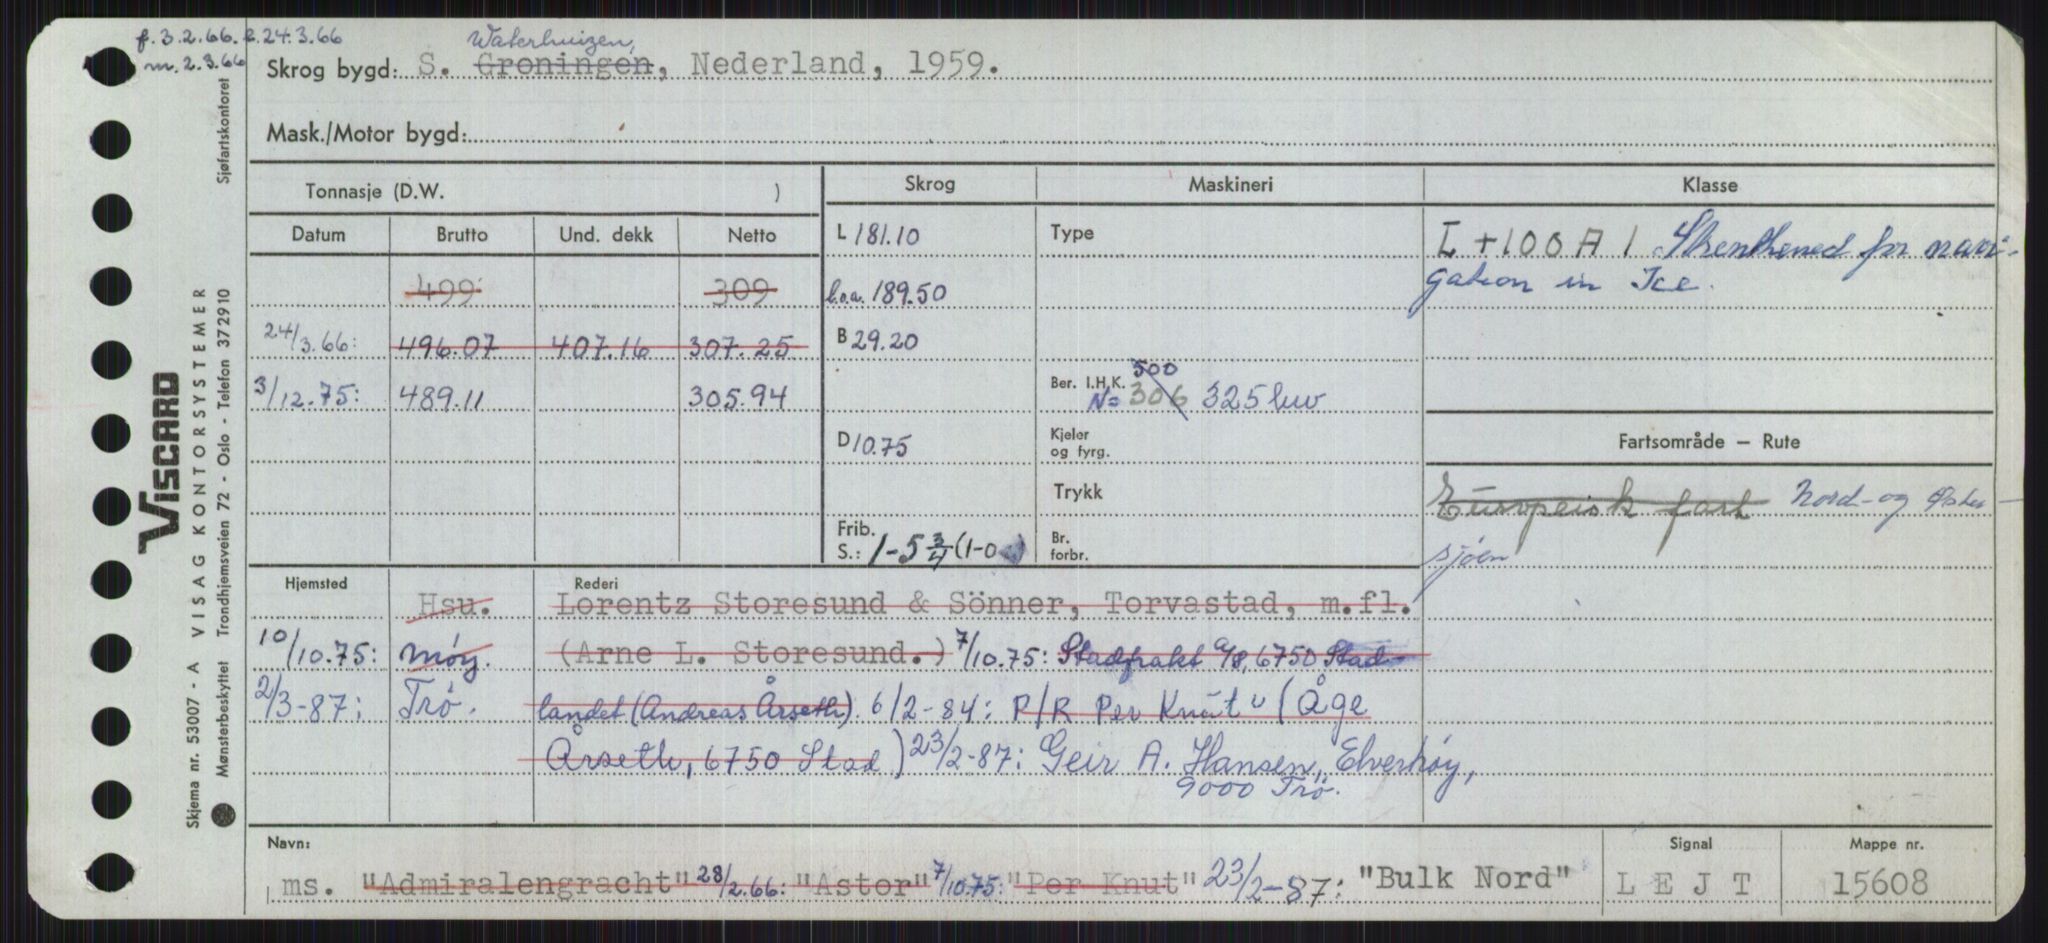 f. 3.2.66. e. 24.3.66
m. 2.3.66
Waterhuizen,
Skrog bygd: S. Groningen, Nederland, 1959.
Mask./Motor bygd:
Tonnasje (D.W. )
Skrog
Maskineri
Klasse
Datum Brutto Und. dekk Netto
L 181.10
Type
I +100 A 1 Strenthened for navi-
gation in Ice.
499 309
l.o.a. 189.50
24/3.66: 496.07 407.16 307.25
B 29.20
3/12.75: 489.11 305.94
500
Ber. I.H.K.
N= 306 325 luv
D 10.75
Kjeler
og fyrg.
Fartsområde – Rute
Trykk
Europeisk fart Nord- og Øster-
sjøen
Frib.
S.: 1-5 3/4 (1-0
Br.
forbr.
Hjemsted
Rederi
Hsu. Lorentz Storesund & Sönner, Torvastad, m.fl.
10/10.75: Møy. (Arne L. Storesund.) 7/10.75: Stadfrakt a/s, 6750 Stad-
2/3-87: Trø. landet (Andreas Årseth). 6/2-84: P/R Per Knut" (Åge
Årseth, 6750 Stad) 23/2-87: Geir A. Hansen, Elverhøy,
9000 Trø.
Navn:
Signal
Mappe nr.
ms. "Admiralengracht" 28/2.66: "Astor" 7/10.75: "Per Knut" 23/2-87: "Bulk Nord"
LEJT
15608
Skjema nr. 53007 - A VISAG KONTORSYSTEMER
VISCARD
Mønsterbeskyttet Trondhjemsveien 72 - Oslo - Telefon 372910
Sjøfartskontoret